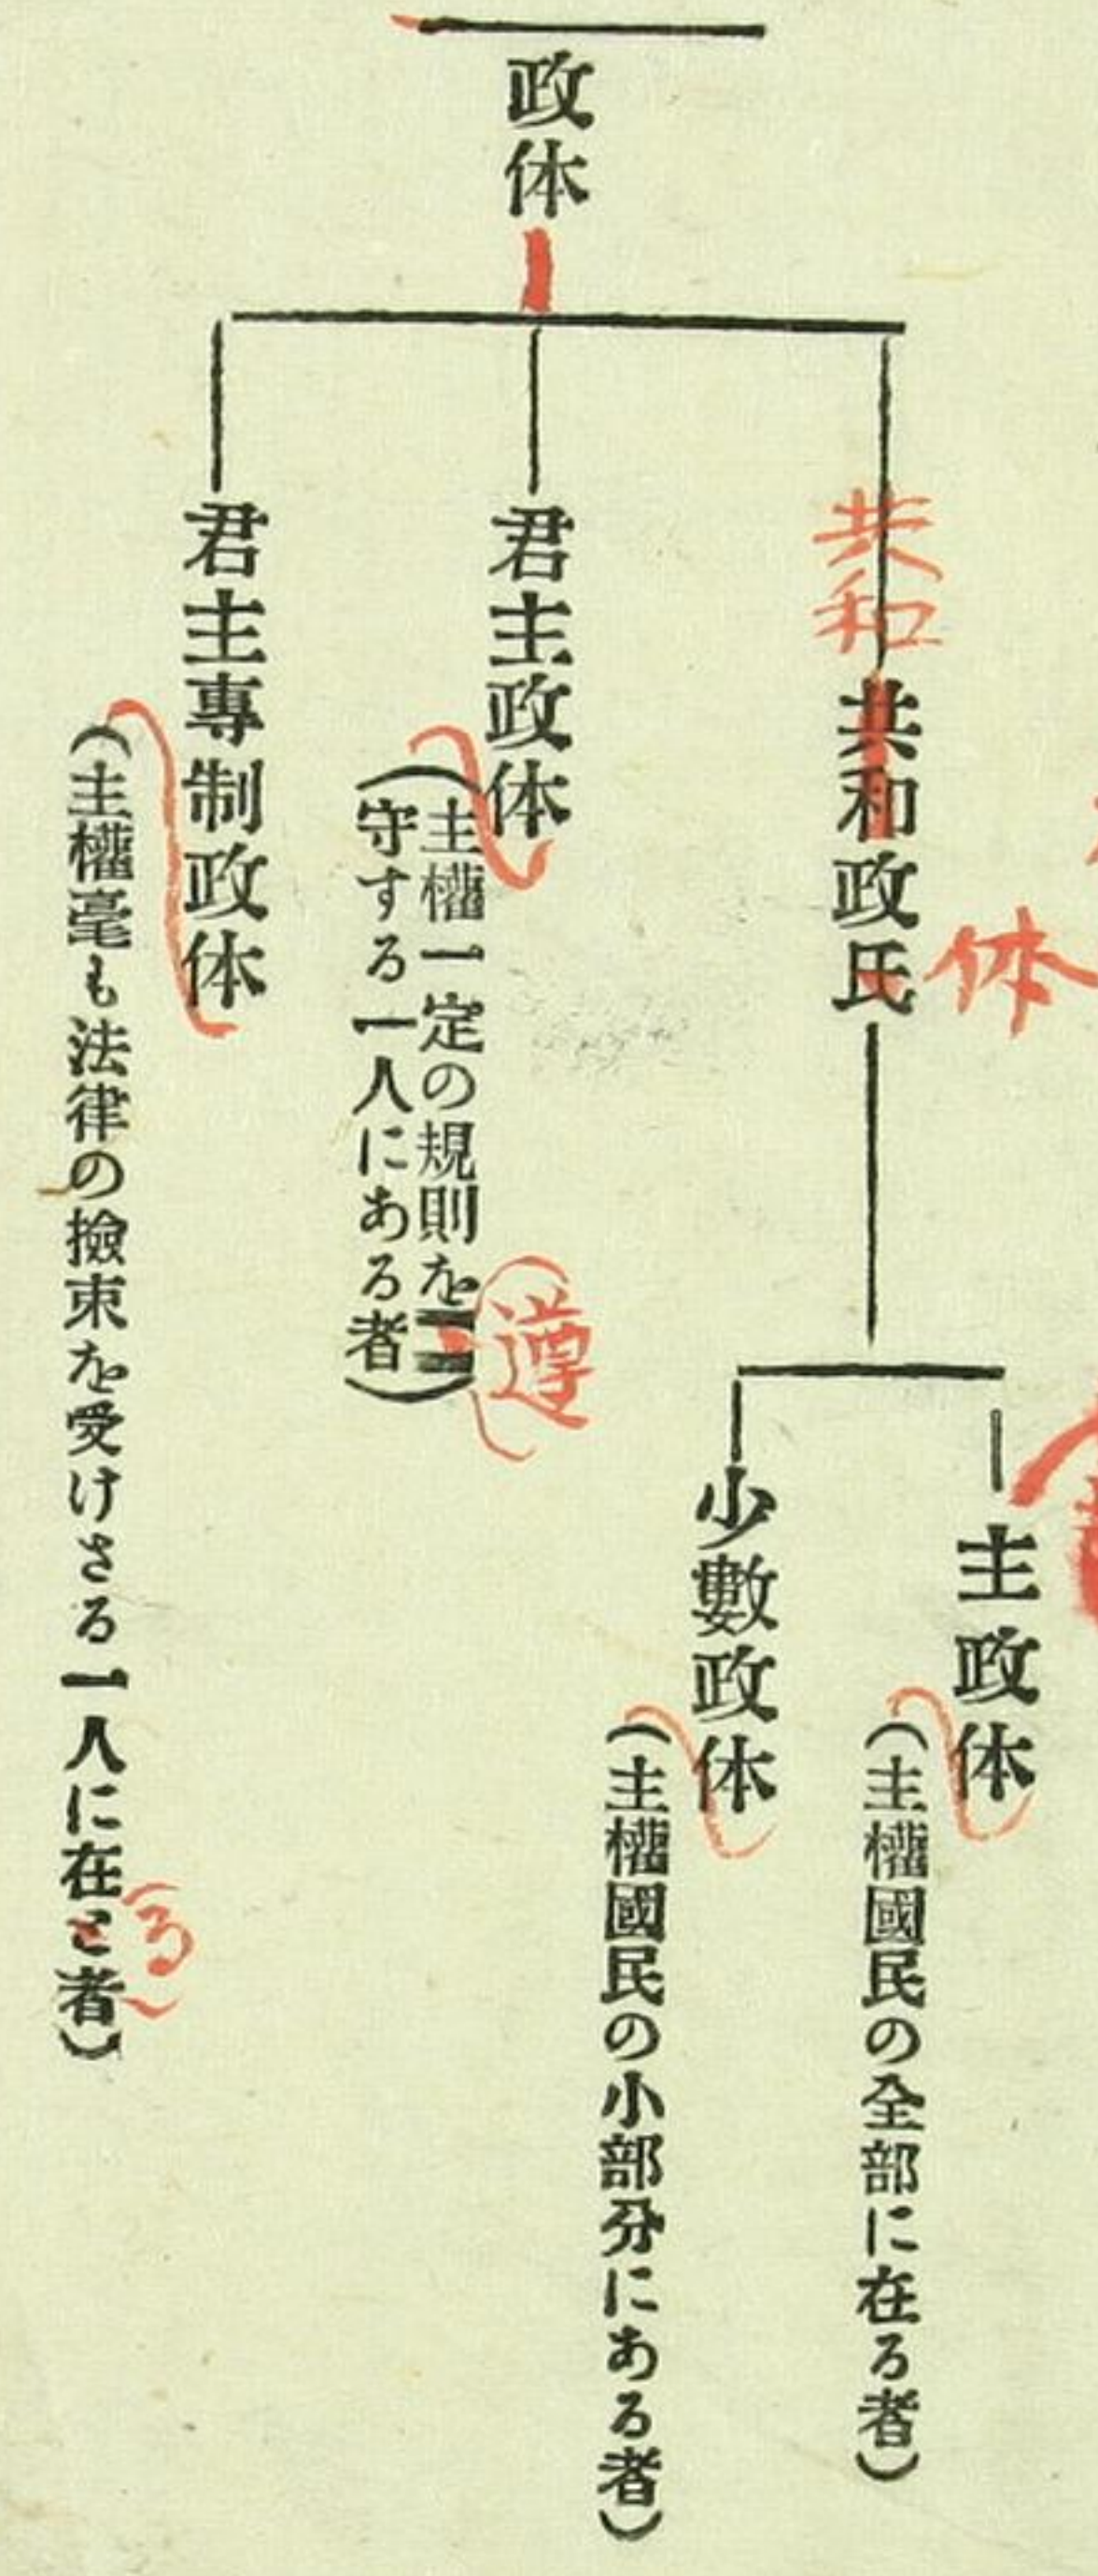 政体
共和
共和政氏
休
主政体
(主權國民の全部に在る者)
少數政体
(主權國民の小部分にある者)
君主政体
(主權一定の規則を〓
遵
守する一人にある者)
君主專制政体
(主權毫も法律の撿束を受けさる一人に在と者)
る